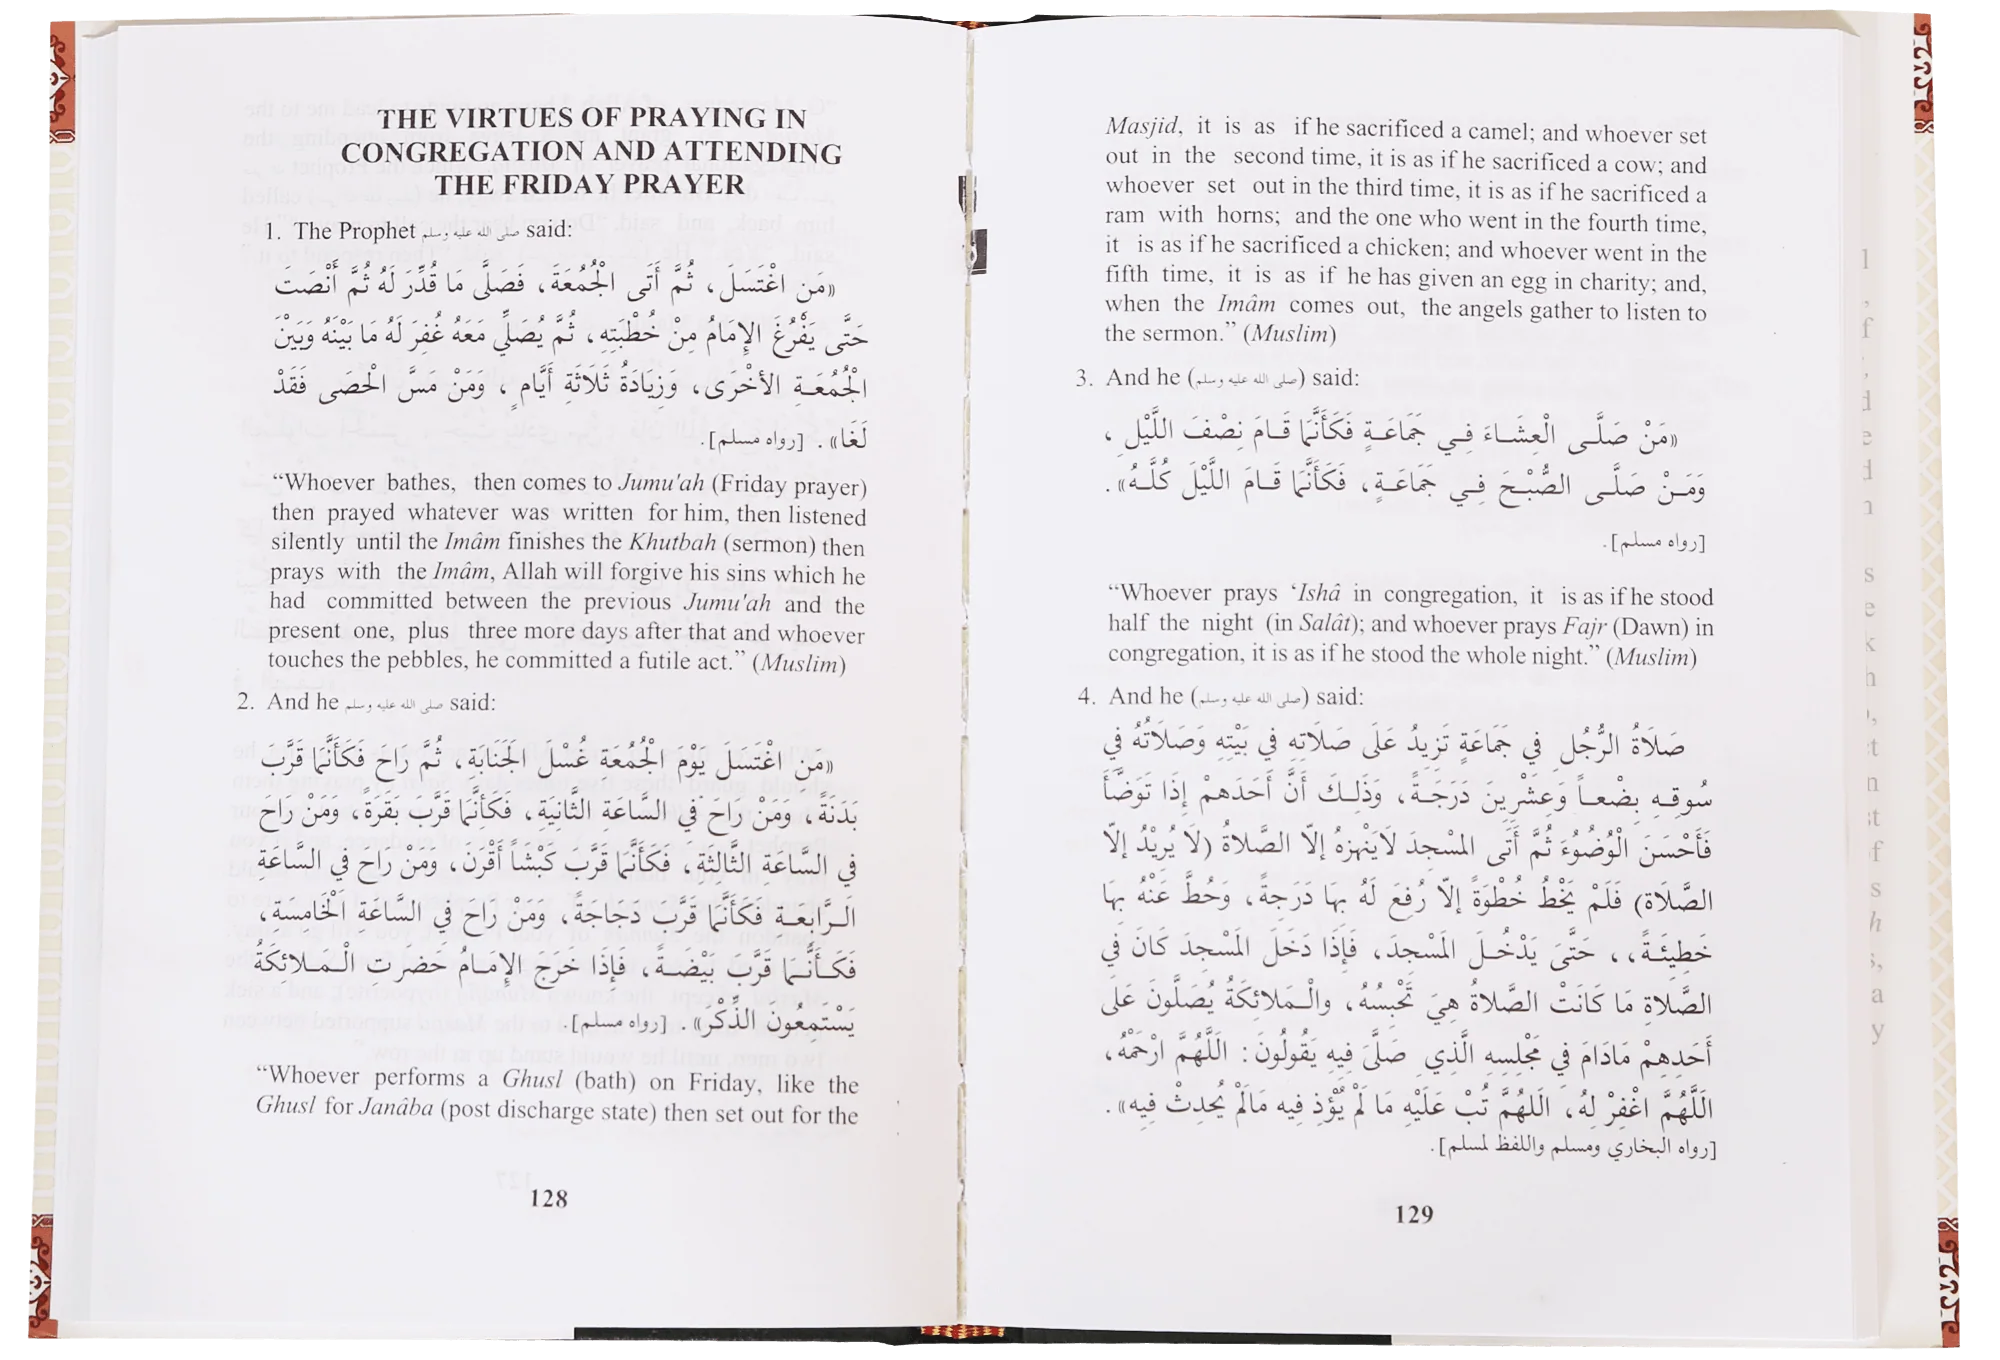 THE VIRTUES OF PRAYING IN
CONGREGATION AND ATTENDING
THE FRIDAY PRAYER
1. The Prophet صلى الله عليه وسلم said:
«مَن اغْتَسَلَ، ثُمَّ أَتَى الْجُمُعَةَ، فَصَلَّى مَا قُدِّرَ لَهُ ثُمَّ أَنْصَتَ
حَتَّى يَفْرُغَ الإِمَامُ مِنْ خُطْبَتِهِ، ثُمَّ يُصَلِّي مَعَهُ غُفِرَ لَهُ مَا بَيْنَهُ وَبَيْنَ
الْجُمُعَةِ الأخْرَى، وَزِيَادَةُ ثَلَاثَةِ أَيَّامٍ، وَمَنْ مَسَّ الْحَصَى فَقَدْ
لَغَا». [رواه مسلم].
“Whoever bathes, then comes to Jumu'ah (Friday prayer)
then prayed whatever was written for him, then listened
silently until the Imâm finishes the Khutbah (sermon) then
prays with the Imâm, Allah will forgive his sins which he
had committed between the previous Jumu'ah and the
present one, plus three more days after that and whoever
touches the pebbles, he committed a futile act.” (Muslim)
2. And he صلى الله عليه وسلم said:
«مَن اغْتَسَلَ يَوْمَ الْجُمُعَةِ غُسْلَ الْجَنَابَةِ، ثُمَّ رَاحَ فَكَأَنَّمَا قَرَّبَ
بَدَنَةً، وَمَنْ رَاحَ فِي السَّاعَةِ الثَّانِيَةِ، فَكَأَنَّمَا قَرَّبَ بَقَرَةً، وَمَنْ رَاحَ
فِي السَّاعَةِ الثَّالِثَةِ، فَكَأَنَّمَا قَرَّبَ كَبْشَاً أَقْرَنَ، وَمَنْ رَاحَ فِي السَّاعَةِ
الرَّابِعَةِ فَكَأَنَّمَا قَرَّبَ دَجاجَةً، وَمَنْ رَاحَ فِي السَّاعَةِ الْخَامِسَةِ،
فَكَأَنَّمَا قَرَّبَ بَيْضَةً، فَإِذَا خَرَجَ الإِمَامُ حَضَرَتِ الْمَلائِكَةُ
يَسْتَمِعُونَ الذِّكْرَ». [رواه مسلم].
“Whoever performs a Ghusl (bath) on Friday, like the
Ghusl for Janâba (post discharge state) then set out for the
128
Masjid, it is as if he sacrificed a camel; and whoever set
out in the second time, it is as if he sacrificed a cow; and
whoever set out in the third time, it is as if he sacrificed a
ram with horns; and the one who went in the fourth time,
it is as if he sacrificed a chicken; and whoever went in the
fifth time, it is as if he has given an egg in charity; and,
when the Imâm comes out, the angels gather to listen to
the sermon.” (Muslim)
3. And he (صلى الله عليه وسلم) said:
«مَنْ صَلَّى الْعِشَاءَ فِي جَمَاعَةٍ فَكَأَنَّمَا قَامَ نِصْفَ اللَّيْلِ،
وَمَنْ صَلَّى الصُّبْحَ فِي جَمَاعَةٍ، فَكَأَنَّمَا قَامَ اللَّيْلَ كُلَّهُ».
[رواه مسلم].
“Whoever prays ‘Ishâ in congregation, it is as if he stood
half the night (in Salât); and whoever prays Fajr (Dawn) in
congregation, it is as if he stood the whole night.” (Muslim)
4. And he (صلى الله عليه وسلم) said:
صَلَاةُ الرَّجُلِ فِي جَمَاعَةٍ تَزِيدُ عَلَى صَلَاتِهِ فِي بَيْتِهِ وَصَلَاتُهُ فِي
سُوقِهِ بِضْعاً وَعِشْرِينَ دَرَجَةً، وَذَلِكَ أَنَّ أَحَدَهمْ إِذَا تَوَضَّأَ
فَأَحْسَنَ الْوُضُوُءَ ثُمَّ أَتَى المْسْجِدَ لاَيَنْهِزهُ إلّا الصَّلاةُ (لَا يُرِيْدُ إلّا
الصَّلَاة) فَلَمْ يَخْطُ خُطْوَةً إلّا رُفِعَ لَهُ بِهَا دَرَجةً، وَحُطَّ عَنْهُ بِهَا
خَطِيئَةً،، حَتَّىَ يَدْخُلَ المَسْجِدَ، فَإِذَا دَخَلَ المَسْجِدَ كَانَ فِي
الصَّلاةِ مَا كَانَتْ الصَّلاةُ هِيَ تَحْبِسُهُ، والْمَلائِكَةُ يُصَلُّونَ عَلَى
أَحَدِهِمْ مَادَامَ فِي مَجْلِسِهِ الَّذِي صَلَّىَ فِيهِ يَقُولُونَ: اللَّهُمَّ ارْحَمْهُ،
اللَّهُمَّ اغْفِرْ لهُ، اللهُمَّ تُبْ عَلَيْهِ مَا لَمْ يُؤْذِ فِيه مَالَمْ يُحْدِثْ فِيهِ».
[رواه البخاري ومسلم واللفظ لمسلم].
129